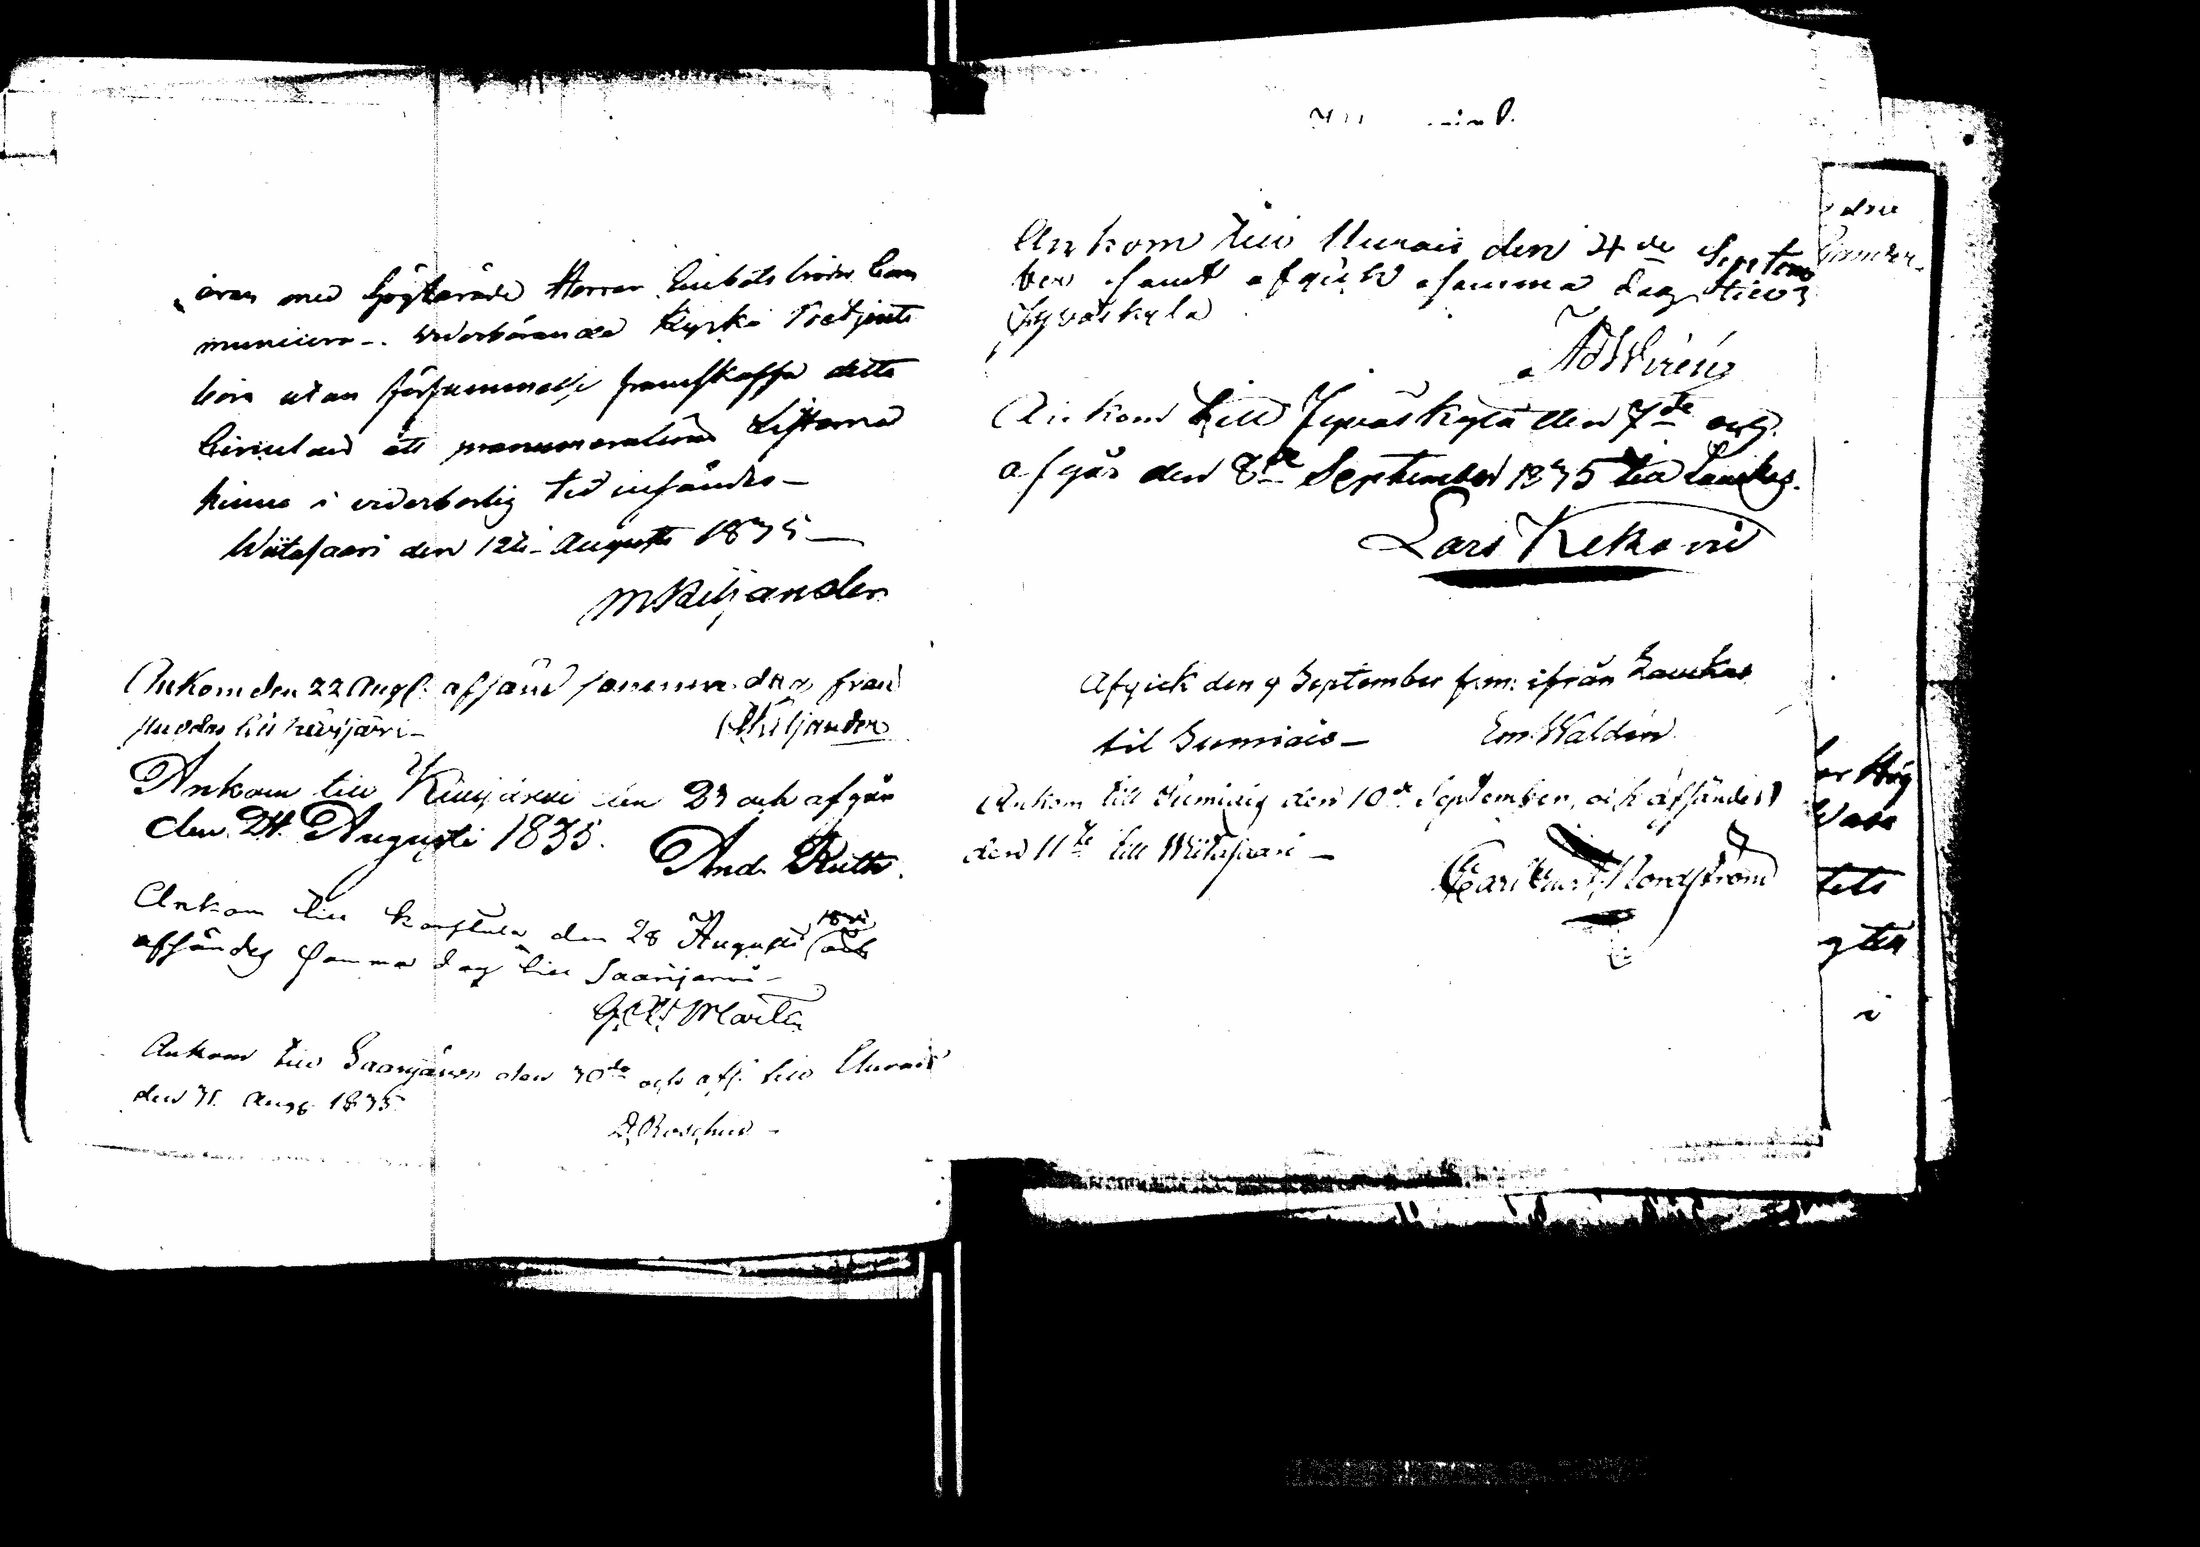 öran med högtärade Herrar Embets bröder Com
municera. wederbörande Kyrko Betjente
böra utan försummelse framskaffa detta
Circulair att prænumerations Listorna
hinna i wederbörlig tid insändas
Wiitasaari den 12te Augusti 1835
M Kiljander
Ankom den 22 Aug. afsänd samma dag från
till Kivijärvi
Kiljander
Ankom till Kivijärvi den 23 och afgår
den 24 Augusti 1835.
And. Ruth.
Ankom till Karstula den 28 Augusti 1835 och
afsändes samma dag till Saarijärvi
Martin
Ankom till Saarijärvi den 30de och afs. till Uurais
den 31. Aug. 1835
Roschier
Ankom till Uurais den 4de Septem
ber samt afgick samma dag till
Jyväskylä
Ad Wirén
Ankom till Jyväskylä den 7de och
afgår den 8de September 1835 till Laukas.
Lars Kekoni
Afgick den 9 September f.m. ifrån Laukas
til Sumiais
Em. Waldén
Ankom till Sumiais den 10de September, och afsändes
den 11te till Wiitasaari
Carl Nordström
tets
i